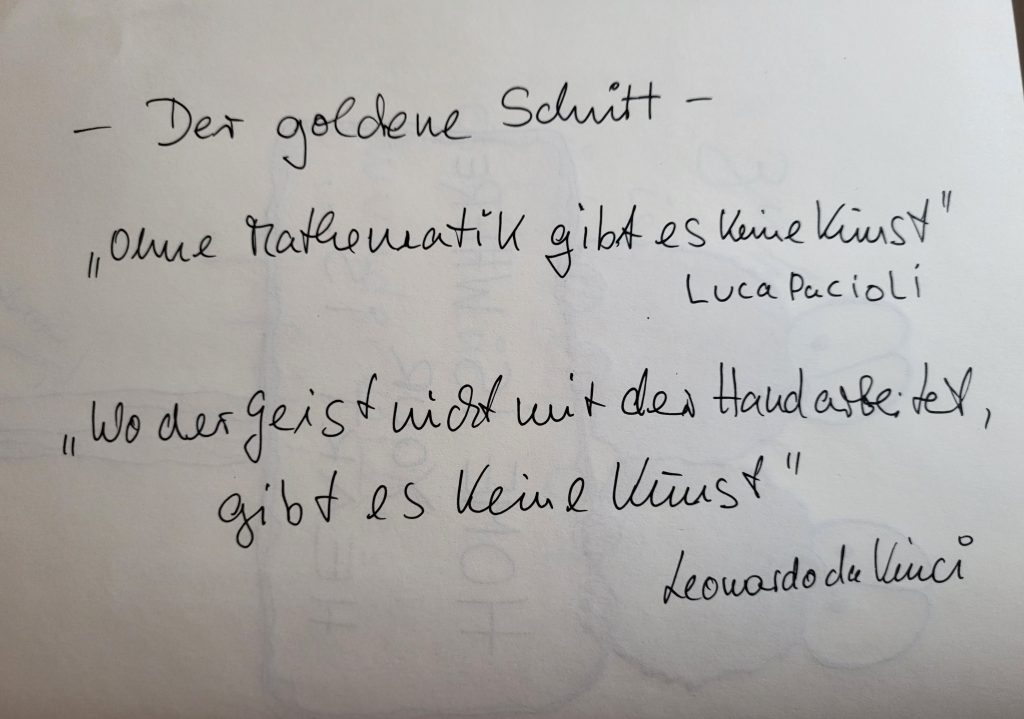 - Der goldene Schnitt -
„Ohne Mathematik gibt es keine Kunst"
Luca Pacioli
„Wo der Geist nicht mit der Hand arbeitet,
gibt es keine Kunst"
Leonardo da Vinci